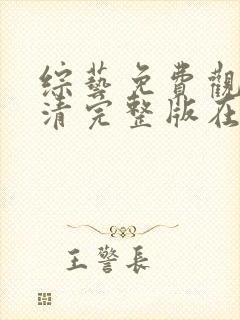 綜藝免費觀
清完整版在
王警長